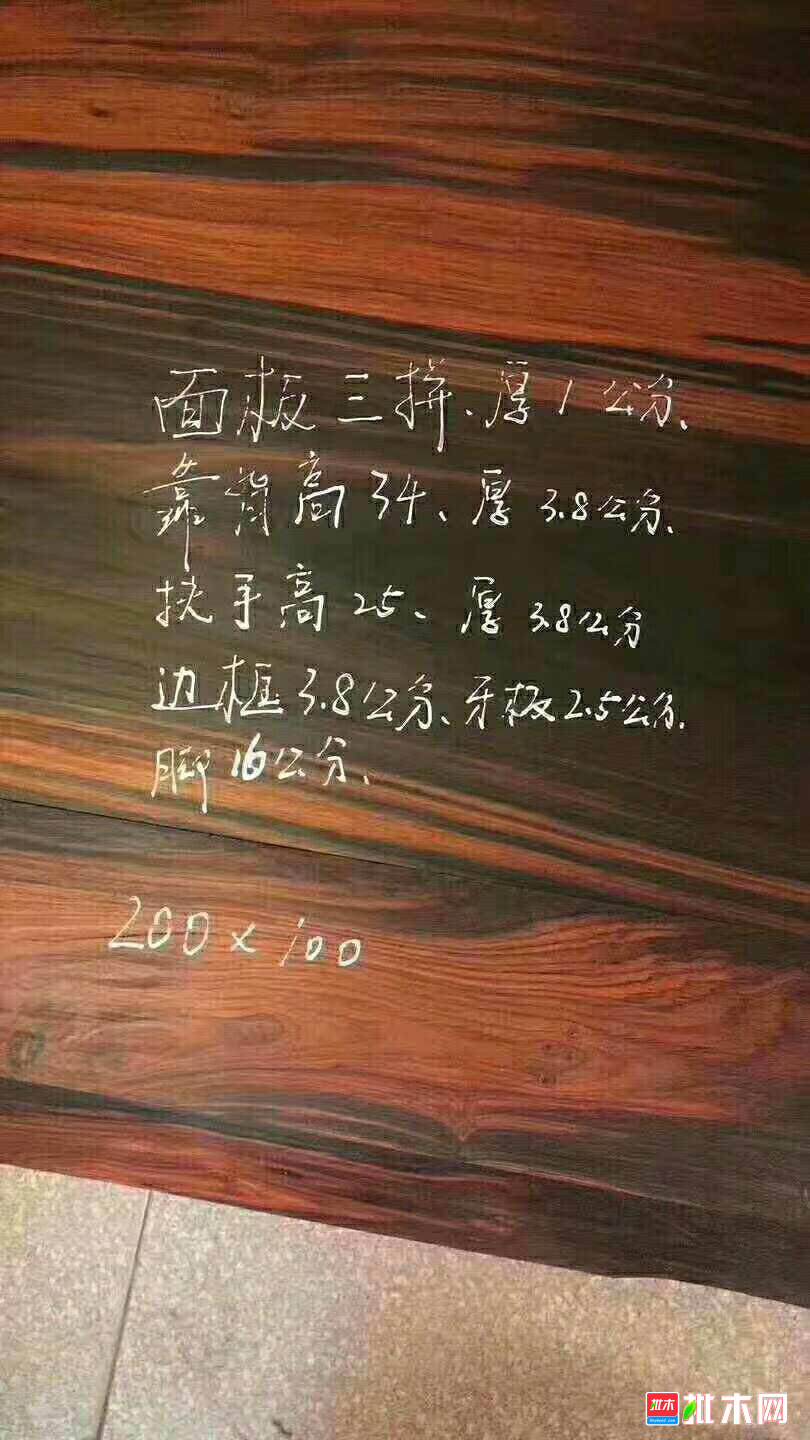 面板三拼、厚1公分、
靠背高34、厚3.8公分、
扶手高25、厚3.8公分
边框3.8公分、牙板2.5公分、
脚16公分、
200×100
批木 批木网